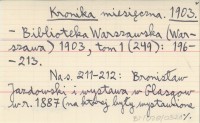 Kronika miesięczna. 1903.
- Biblioteka Warszawska (War-
szawa) 1903, tom 1 (249): 196-
-213.
Na s. 211-212: Bronisław
Jazdowski i wystawa w Glasgow
w r. 1887 (na której były wystawione